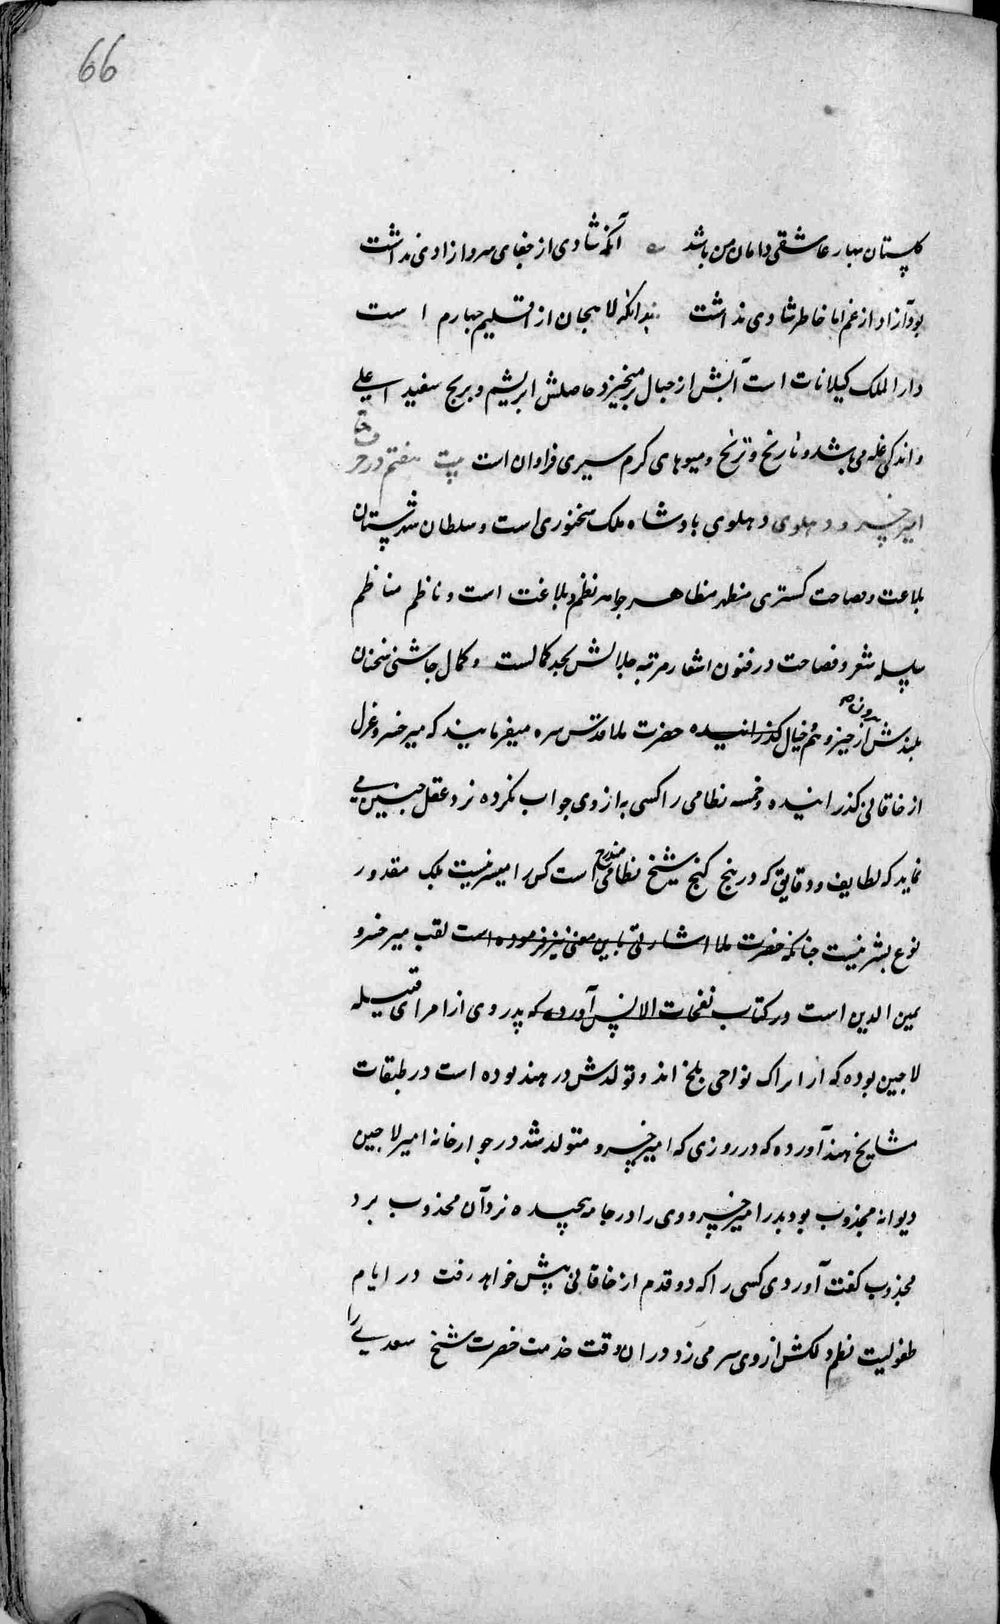 66
گلستان بهار عاشقی دامان من باشد آنکه شادی از جفای سرو ازادی نداشت
بود آزاد از غم اما خاطر شادی نداشت بدانکه لاهیجان از اقلیم چهارم است
دار الملک گیلانات است آبش از جبال برمیخیزد حاصلش ابریشم و برنج سفید اعلی
و اندکی غله می باشد و نارنج و ترنج و میوهای گرم سیری فراوان است هفتم در
امیر خسرو دهلوی دهلوی بادشاه ملک سخنوری است و سلطان شهرستان
بلاغت و فصاحت گستری مظهر مظاهر جامه نظم و بلاغت است و ناظم مناظم
سلسله شعر و فصاحت در فنون اشعار مرتبه جلالش بحد کمالست و کمال چاشنی سخنان
بلندش از حیز وهم و خیال بیرون حضرت ملا قدس سره میفرمایند که میر خسرو غزل
از خاقانی گذرانیده و خمسه نظامی را کسی به از وی جواب نکرده نزد عقل چنین می
نماید که لطایف و دقایق که در پنج گنج شیخ نظامی مندرج است کس را میسر نیست بلک مقدور
نوع بشر نیست چنانکه حضرت ملا اشارتی باین معنی نیز فرموده است لقب میر خسرو
یمین الدین است در کتاب نفحات الانس آورده که پدر وی از امرای قبیله
لاجین بوده که از اتراک نواحی بلخ اند و تولدش در هند بوده است در طبقات
مشایخ هند آورده که در روزی که امیر خسرو متولد شد در جوار خانه امیر لاجین
دیوانه مجذوب بود پدر امیر خسرو وی را در جامه پیچیده نزد آن مجذوب برد
مجذوب گفت آوردی کسی را که دو قدم از خاقانی پیش خواهد رفت در ایام
طفولیت نظم دلکش از وی سر می زد و در ان وقت خدمت حضرت شیخ سعدی را